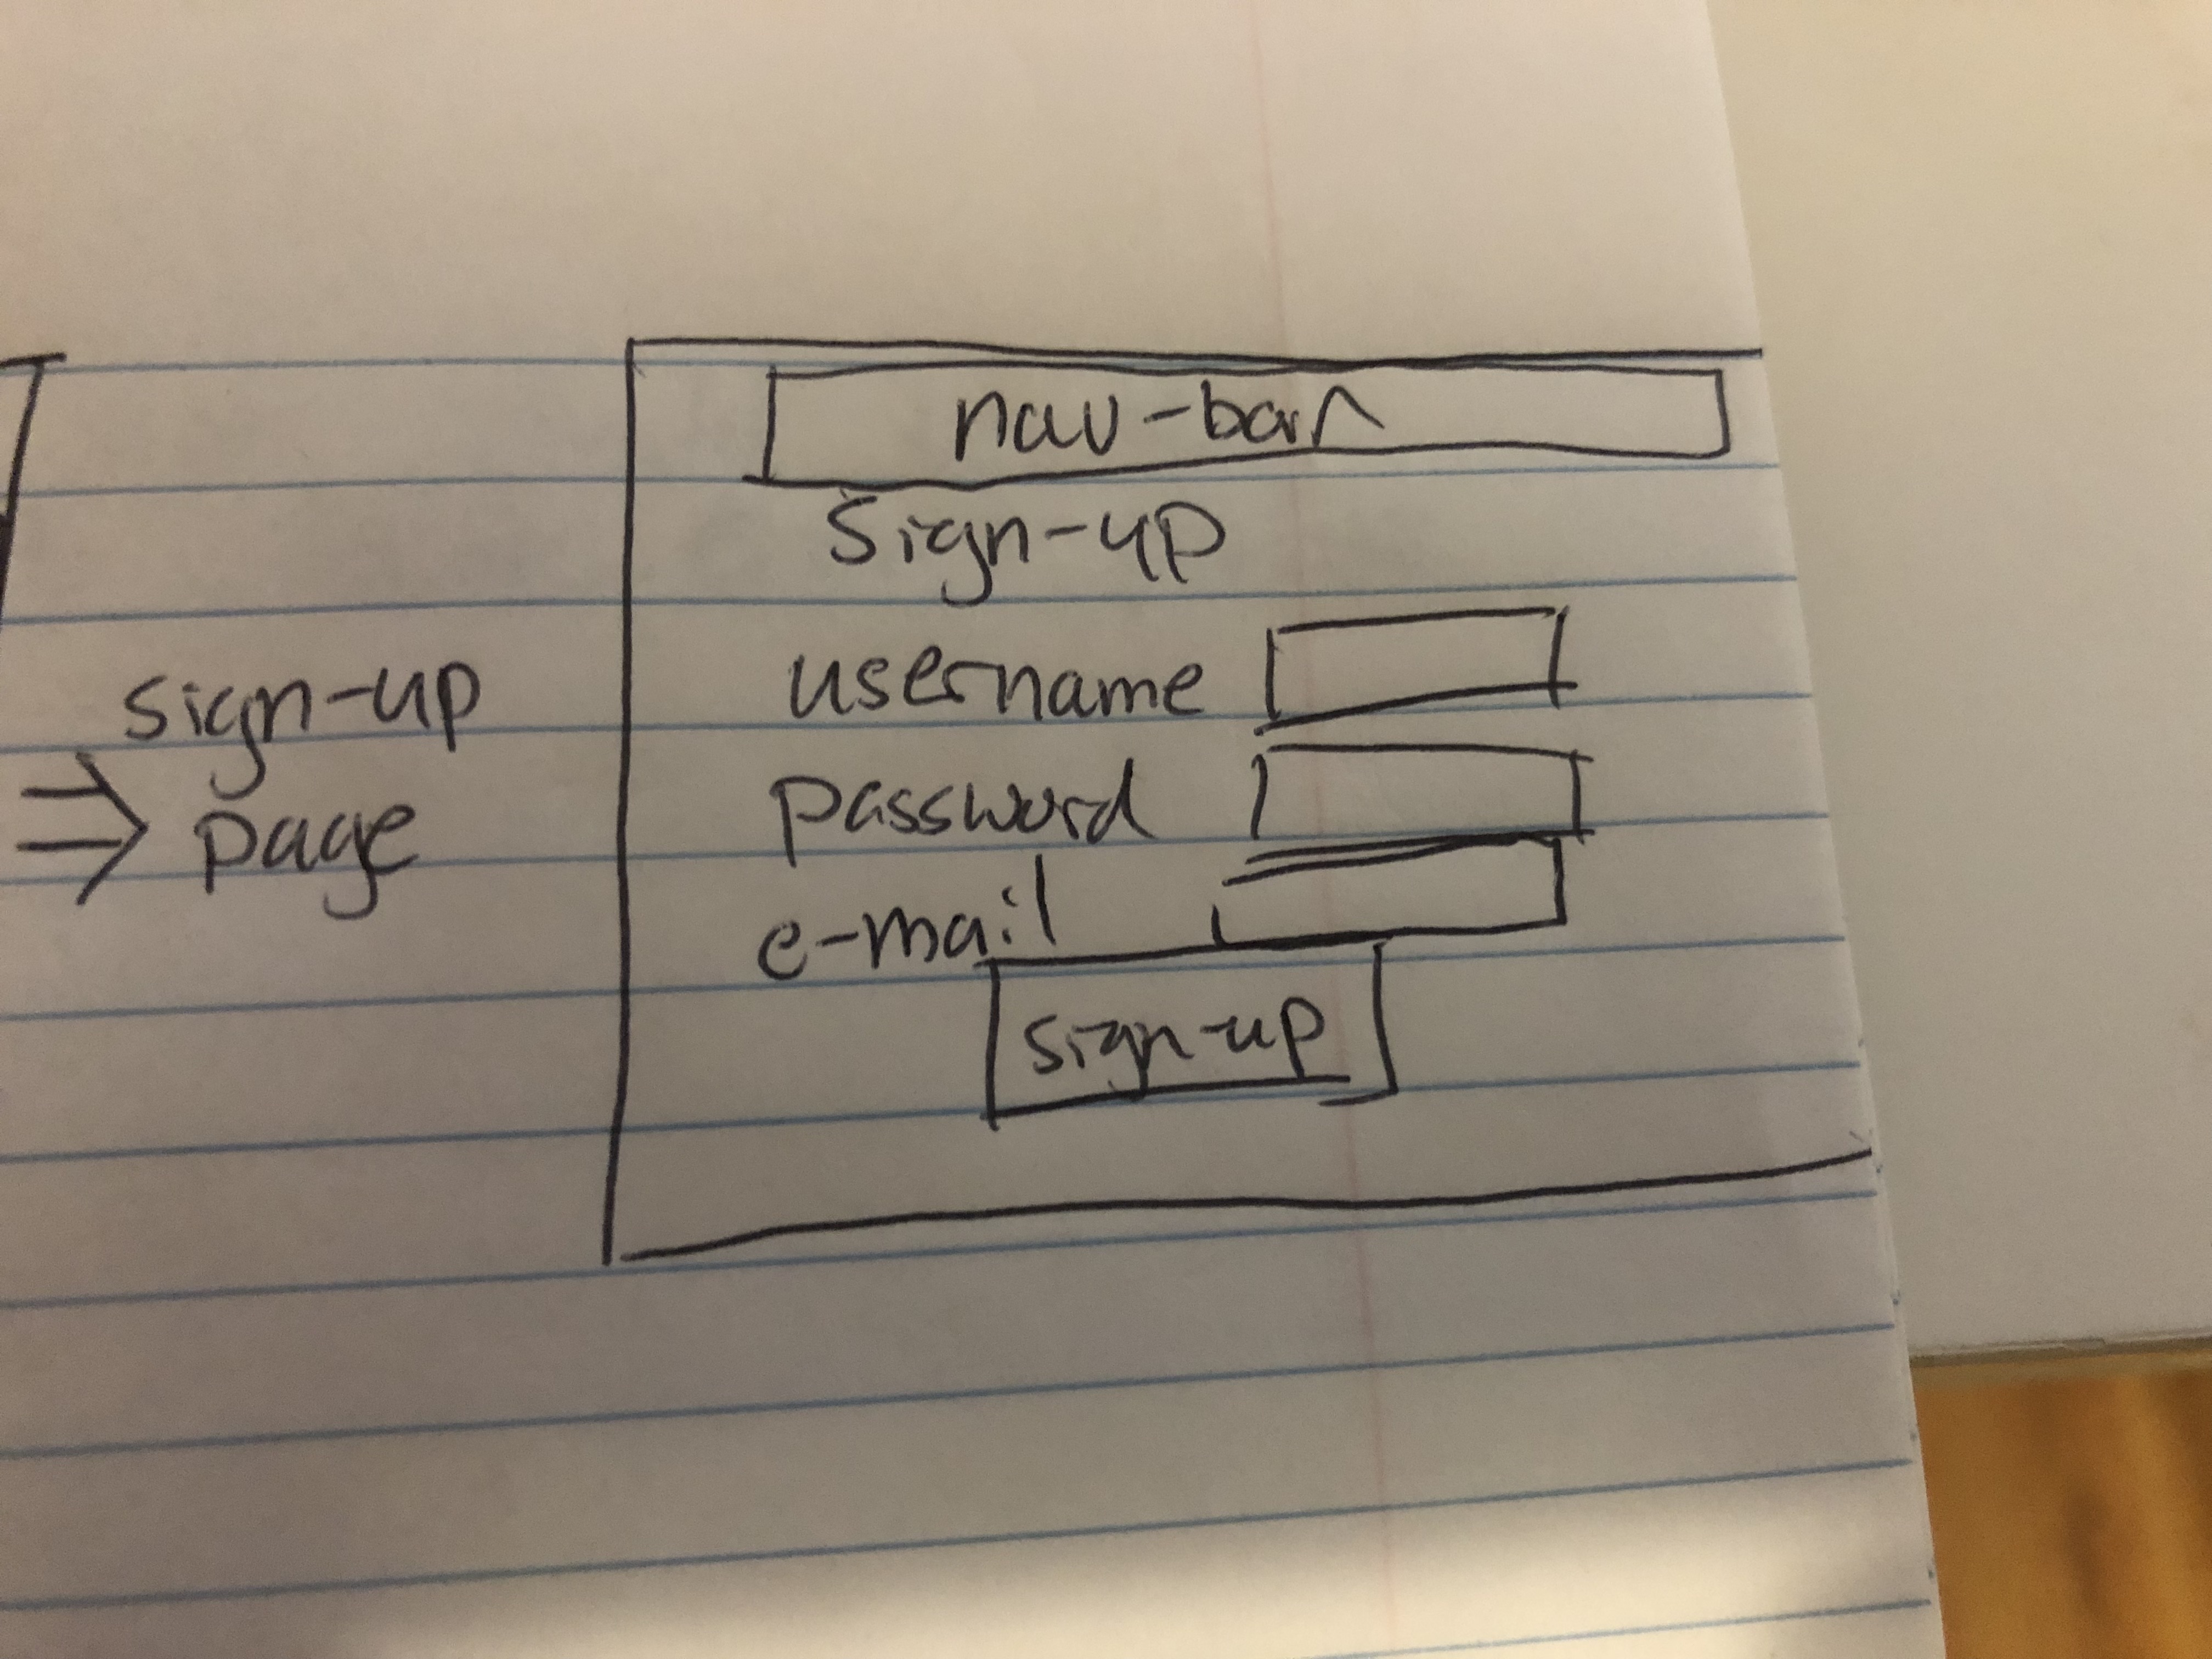 sign-up
page
nav-bar
Sign-up
username
password
e-mail
sign-up